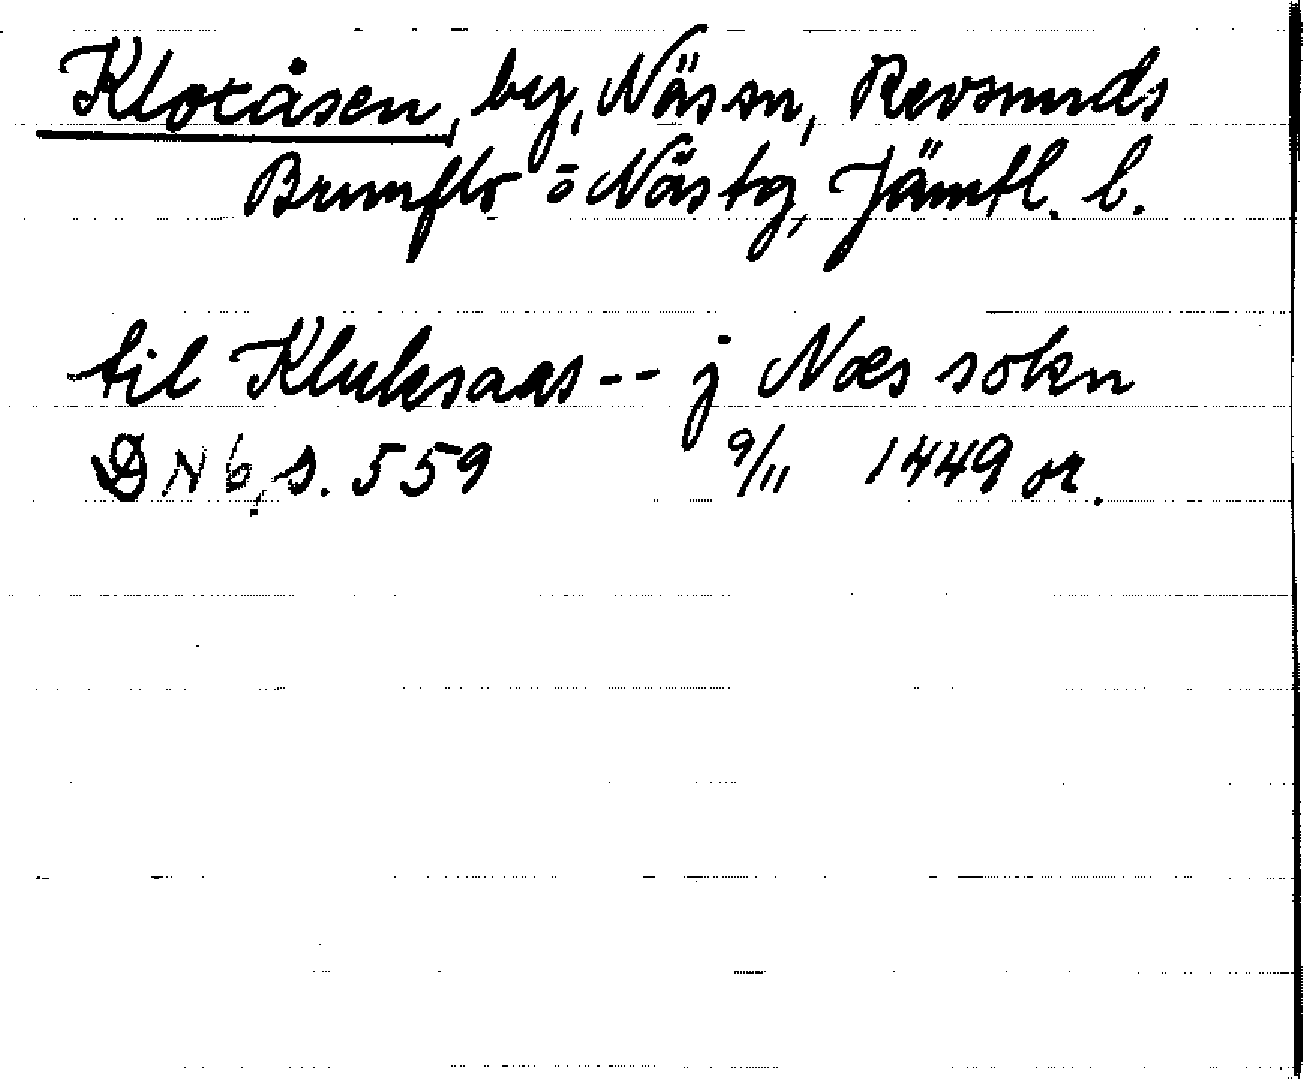 Kloxåsen, by, Näs sn, Revsunds
Brunflo ō Näs tg, Jämtl. l.
til Kluksaas -- j Næs sokn
DN 6, s. 559 9/11 1449 or.